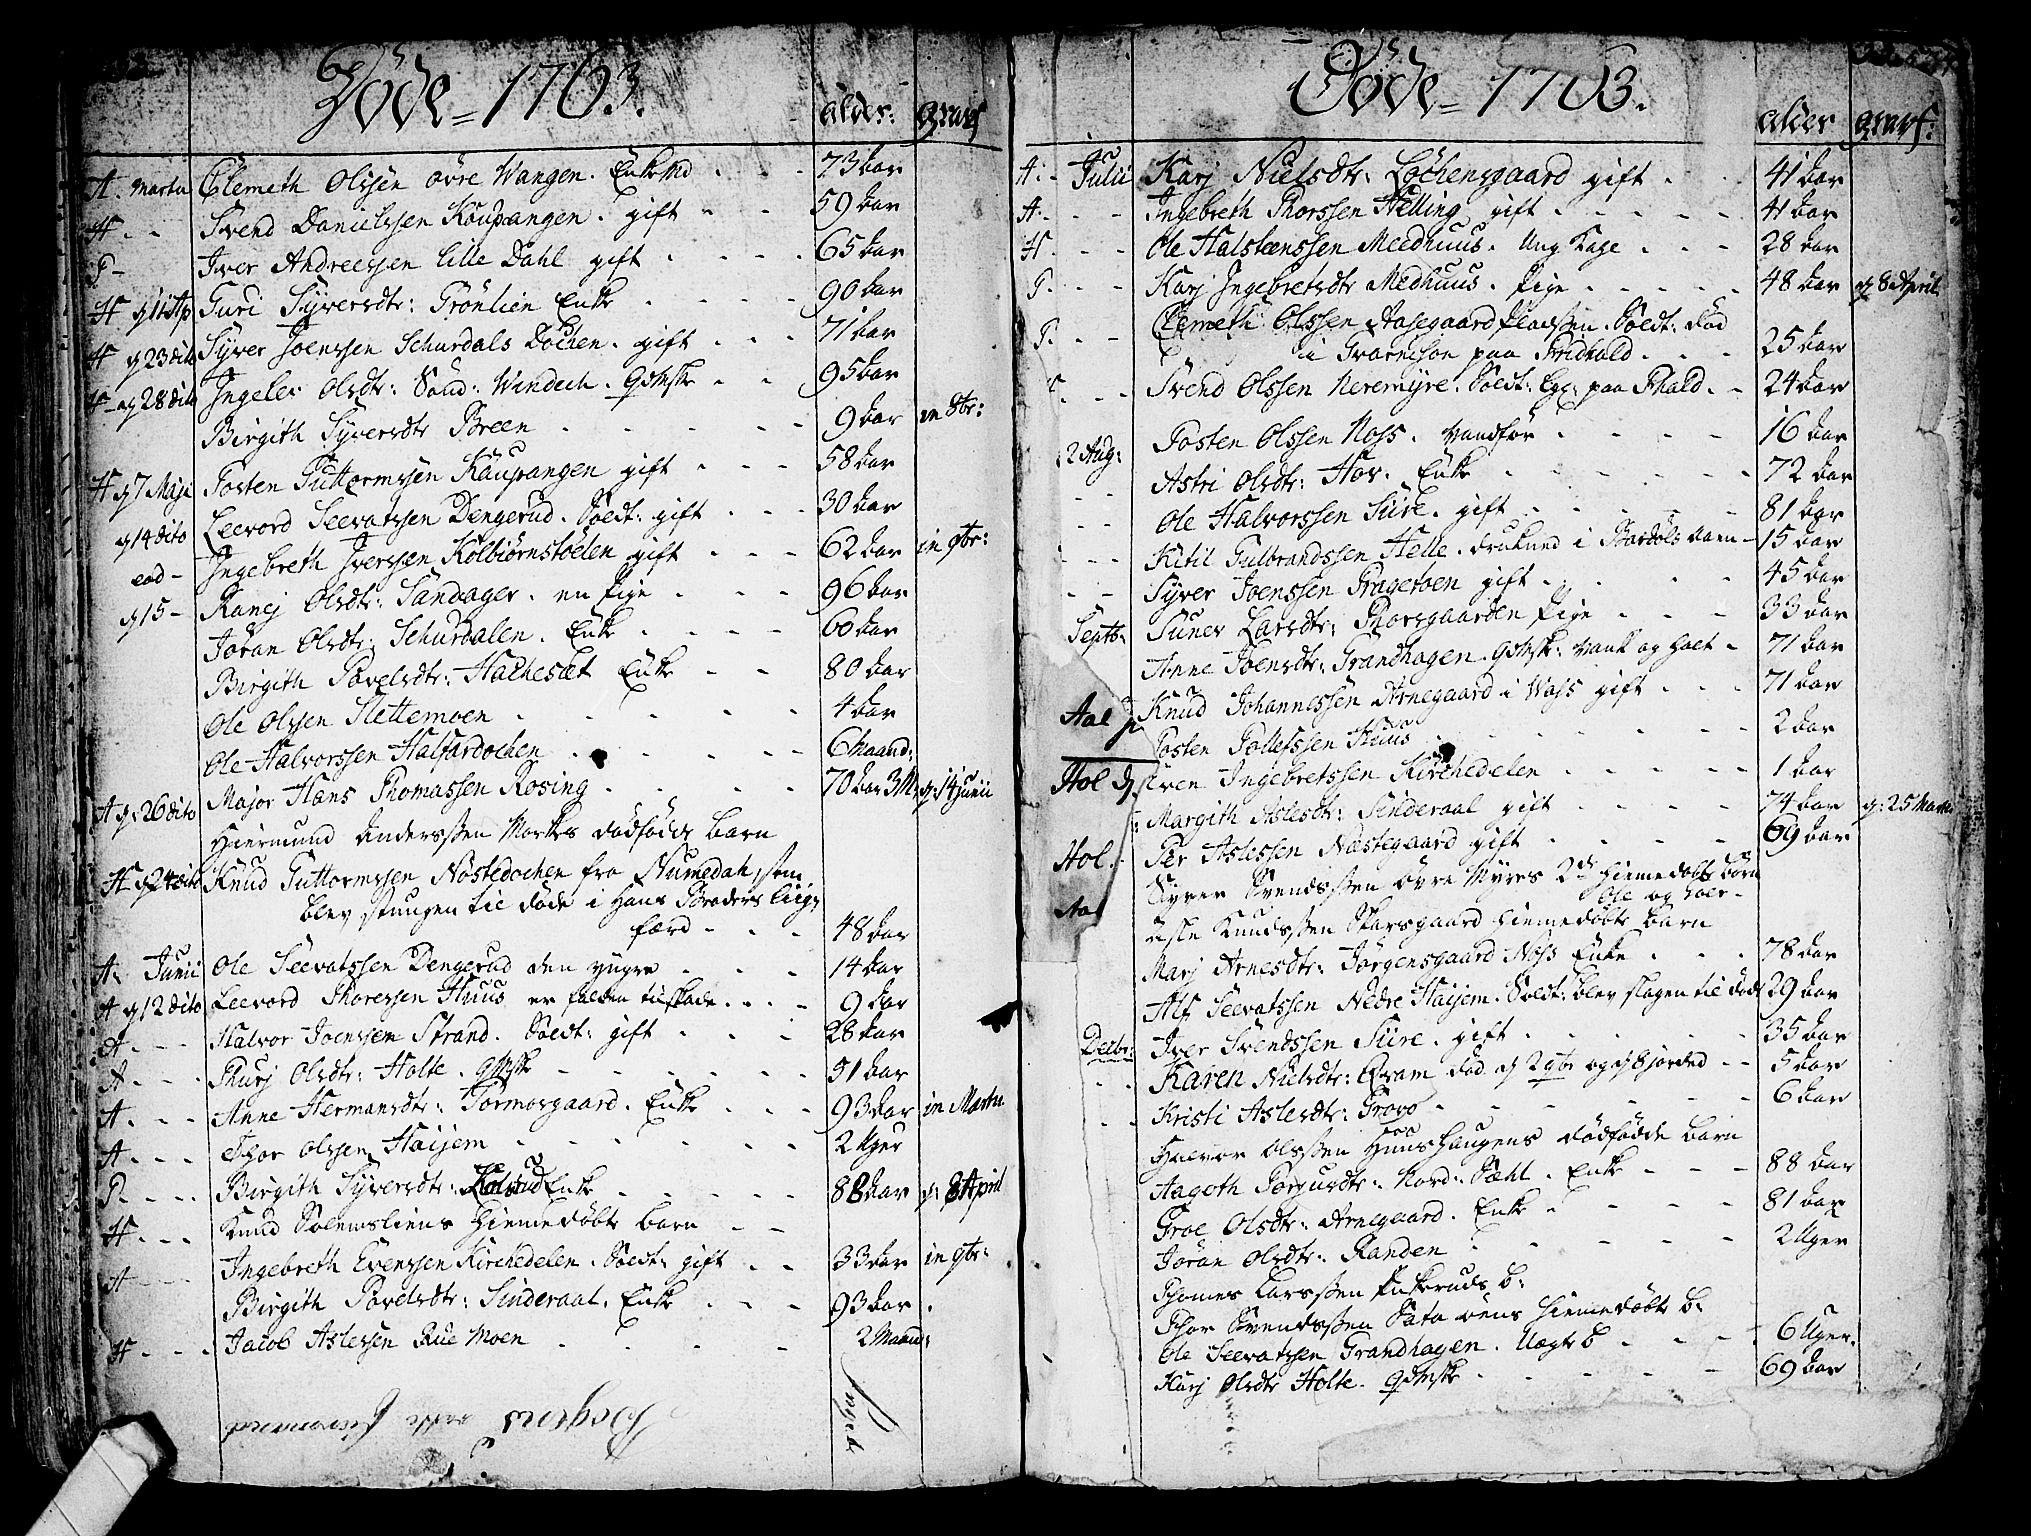 Döde = 1763. alder: graf
A. Martii Clemeth Olssen øvre Wangen. Enkemd 73 aar
H - - Svend Danielssen Kaupangen. gift - - 59 aar
T - Iver Andreessen Lille Dahl gift - - - 65 aar
H d 11 Ap Guri Syversdtr: Grönlien Enke - - - 90 aar
H d 23 dito Syver Joenssen Schurdals Lochen. gift - - - 71 aar
H - d 28 dito Ingeler Olsdtr: Sönd: Windech. - - 95 aar
Birgith Syversdtr Breen - - - - 9 aar in 8br:
H d 7 Maji Tosten Guttormssen Kaupangen gift - - - 58 aar
d 14 dito Leevord Seevatssen Dengerud. Soldt: gift - - - 30 aar
eod - Ingebreth Iverssen Kolbiørnstøelen gift - - - 62 aar in 9br:
d 15 - Ranej Olsdtr: Sandager. en Pige - - - 96 aar
Jöran Olsdtr: Schurdalen. Enke - - - - 60 aar
Birgith Povelsdtr: Hachesæt Enke - - 80 aar
Ole Olssen Slettemoen - - - - - 4 aar
Ole Halvorssen Halfardochen - - - 6 Maand:
A d: 26 dito Major Hans Thomassen Rosing - - - - 70 aar 3 M: d: 14 Junii
Hiermund Anderssen Morkes dødfødde barn
H d 24 dito Knud Guttormssen Nöstedochen fra Numedal, som
blev stungen til døde i Hans Broders Liig,
færd - - - 48 aar
A: Junii Ole Seevatssen Dengerud den yngre - - - 14 aar
A d 12 dito Leevord Thoressen Huus er falden tilskade - - - 9 aar
A - - - Halvor Joenssen Strand. Soldt: gift - - - 28 aar
A - - - Thurj Olsdtr: Holte. - - - - - 91 aar
A - - - Anne Hermansdtr: Tormosgaard. Enke - - - 93 aar in Martii
A - - - Thor Olssen Haijem - - - - - 2 Uger
T - - - Birgith Syversdtr: Kolsrud Enke - - - - 88 aar d: 8 April
H - - - Knud Solemsliens Hiemedøbte barn - -
A - - - Ingebreth Evenssen Kirchedelen. Soldt: gift - - 33 aar in 9br:
Birgith Povelsdtr: Sinderaal. Enke - - - 93 aar
H - - - Jacob Aslessen Rue Moen - - - - 2 Maan:
Döde = 1763. alder graf:
A: - Julii Karj Nielsdtr: Løchensgaard gift - - 41 aar
A: - - - Ingebreth Thorssen Helling gift - - - - - 41 aar
H - - - Ole Halsteenssen Meedhuus. Ung Karl - - - 28 aar
T - - - Karj Ingebretsdtr Medhuus. Pige - - - - - 48 aar d 8 April
T - - Clemeth Olssen Aasegaard Pladssen. Soldt: død
i Guarnison paa Fridhald - - - 25 aar
- - - Svend Olssen Neremyre. Soldt: paa Fhald. - 24 aar
Tosten Olssen Noss. Vandfør - - - - 16 aar
2 Aug: Astri Olsdtr: Hov. Enke - - - - - 72 aar
- - Ole Halvorssen Süre. gift - - - - - 81 aar
- - Kitil Gulbrandssen Helle. druknd i Bardøls aaen - 15 aar
- - - Syver Joenssen Tragetøen gift - - - - - 45 aar
- - Suner Larsdtr: Thorsgaarden Pige - - - 33 aar
Septb: Anne Joensdtr: Grandhagen. vant og halt - 71 aar
Aal Knud Johannessen Arnegaard i Wass gift - - - 71 aar
Tosten Tollefssen Huus - - - - - 2 aar
Hol d Iven Ingebretssen Kirchedelen - - - - - 1 aar
Margith Aslesdtr: Sinderaal gift - - - - 74 aar d: 25 Martii
Hol. - Per Aslessen Næstegaard gift - - - - - 69 aar
Syver Svendssen øvre Myres 2de Hiemedøbte börn
Ole og
Aal Asle Knudssen Skarsgaard Hiemedøbte barn
Marj Arnesdtr: Jörgensgaard Noss Enke - - - 78 aar
Alf Seevatssen Nedre Haijem. Soldt: blev slagen til døde 29 aar
Decbr: Iver Svendssen Süre. gift - - - - - 35 aar
- - Karen Nielsdtr: Qvam død d 29br og d 8 jorded - - 5 aar
- - Kristi Aslesdtr: Grovo - - - - - - 6 aar
Halvor Olssen Huus Haugens dødfødde barn
Aagoth Torgusdtr: Nord: Sæhl. Enke - - - 88 aar
Groe Olsdtr: Arnegaard. Enke - - - - 81 aar
Jöran Olsdtr: Randen - - - - - - 2 Uger
Thomes Larssen Enkeruds b:
Thor Svendssen Sata øens Hiemedøbte b:
Ole Seevatssen Grandhagen. Uægte b - - - 6 Uger.
Karj Olsdtr Holte. - - - - - 69 aar